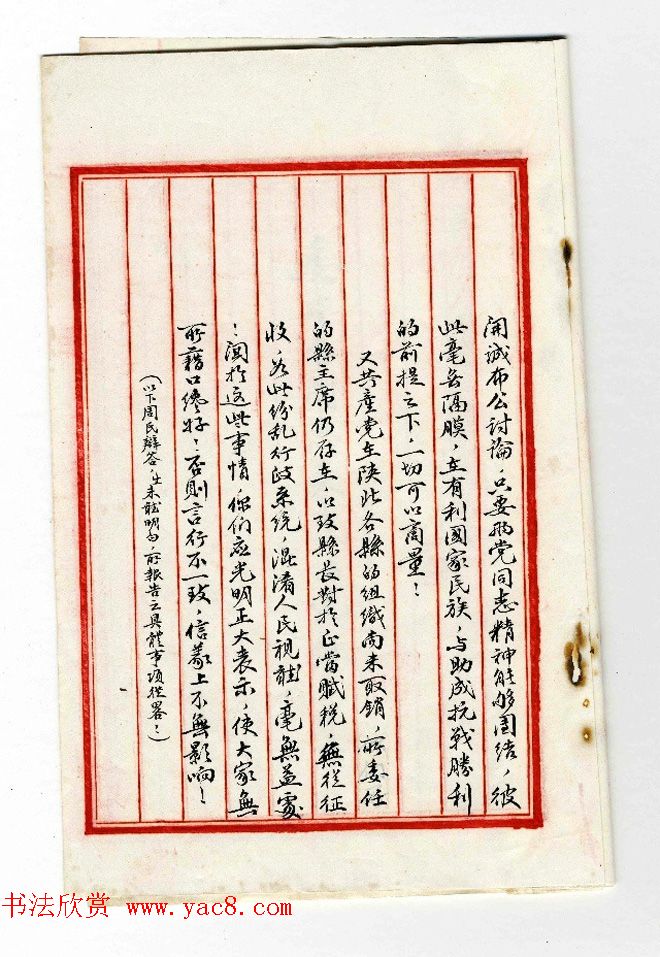 開誠布公討論，只要兩党同志精神能够團結，彼
此毫無隔膜，在有利國家民族，与助成抗戰勝利
的前提之下，一切可以商量！
又共產党在陝北各縣的組織尚未取銷，所委任
的縣主席仍存在，以致縣長對於正當賦稅，無從征
收，如此紛乱行政系統，混淆人民視聽，毫無益處
！関於这些事情，你們应光明正大表示，使大家無
所藉口纔好！否則言行不一致，信義上不無影响！
（以下周氏辯答，生未能明白，所報告之具體事項從畧！）
书法欣赏 www.yac8.com